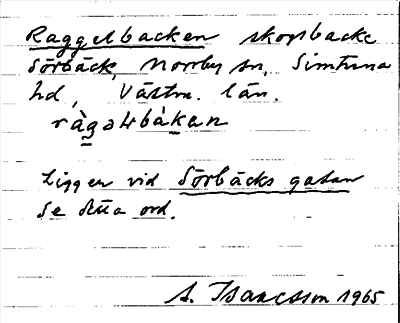 Raggelbacken skogsbacke
Sörbäck, Norrby sn, Simtuna
hd, Västm. län.
ràgəlbàkan
Ligger vid Sörbäcks gatan
Se detta ord.
A. Isaacsson 1965